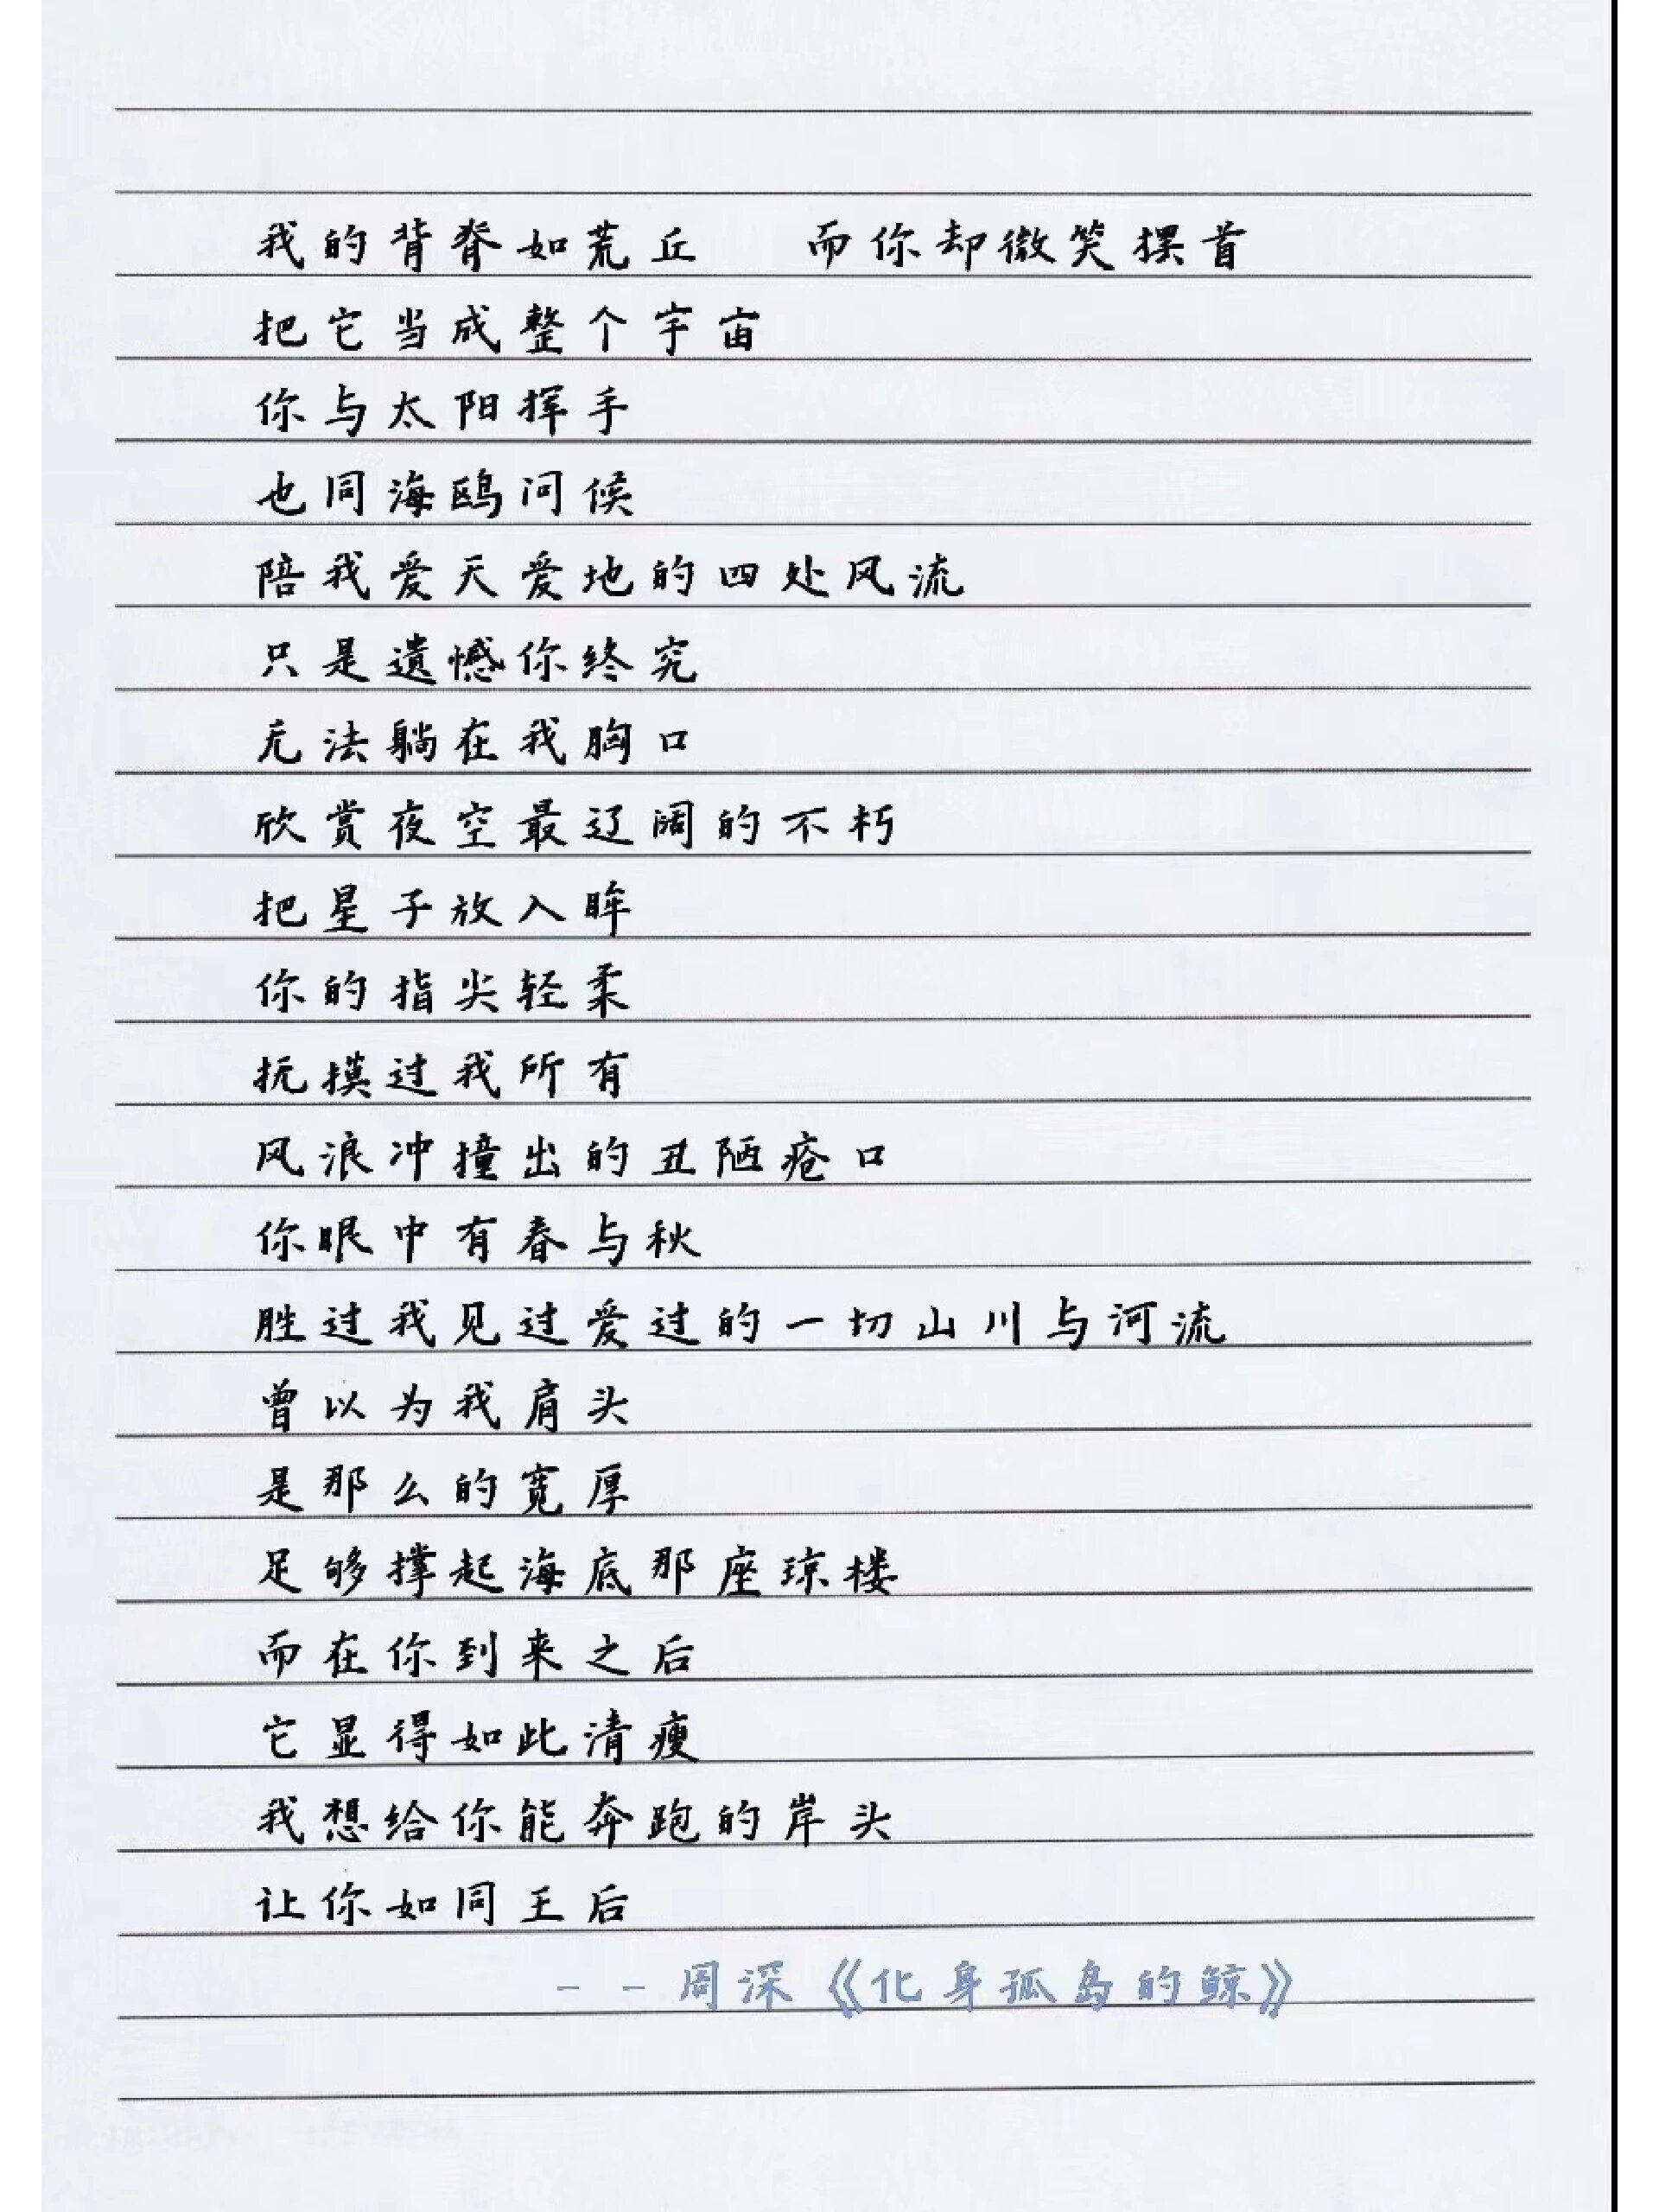 我的背脊如荒丘 而你却微笑摆首
把它当成整个宇宙
你与太阳挥手
也同海鸥问候
陪我爱天爱地的四处风流
只是遗憾你终究
无法躺在我胸口
欣赏夜空最辽阔的不朽
把星子放入眸
你的指尖轻柔
抚摸过我所有
风浪冲撞出的丑陋疮口
你眼中有春与秋
胜过我见过爱过的一切山川与河流
曾以为我肩头
是那么的宽厚
足够撑起海底那座琼楼
而在你到来之后
它显得如此清瘦
我想给你能奔跑的岸头
让你如同王后
--周深《化身孤岛的鲸》